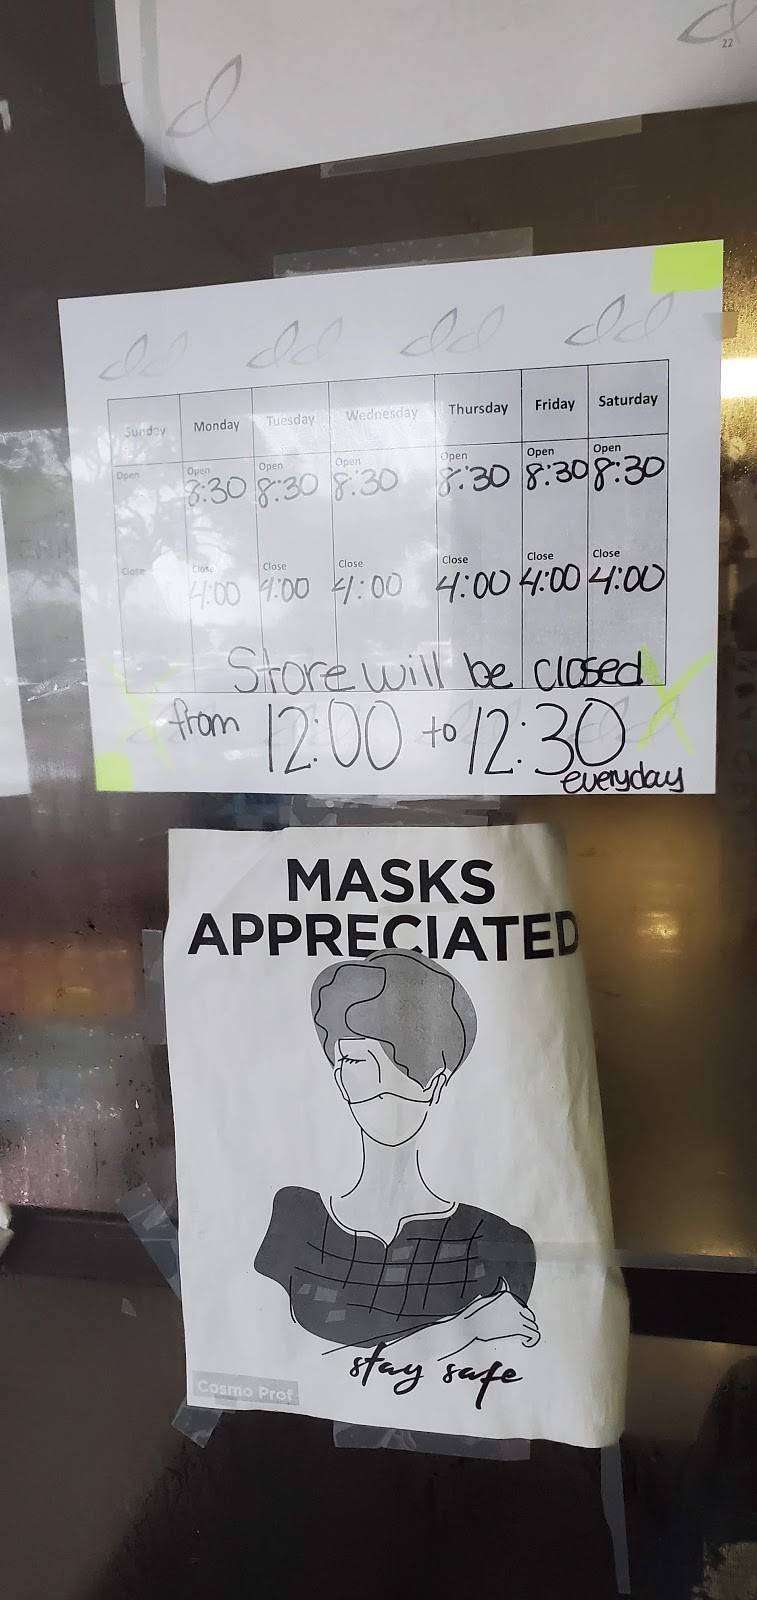 22
Sunday Monday Tuesday Wednesday Thursday Friday Saturday
Open Open Open Open Open Open Open
8:30 8:30 8:30 8:30 8:30 8:30
Close Close Close Close Close Close Close
4:00 4:00 4:00 4:00 4:00 4:00
Store will be closed
from 12:00 to 12:30
everyday
MASKS
APPRECIATED
stay safe
Cosmo Prof